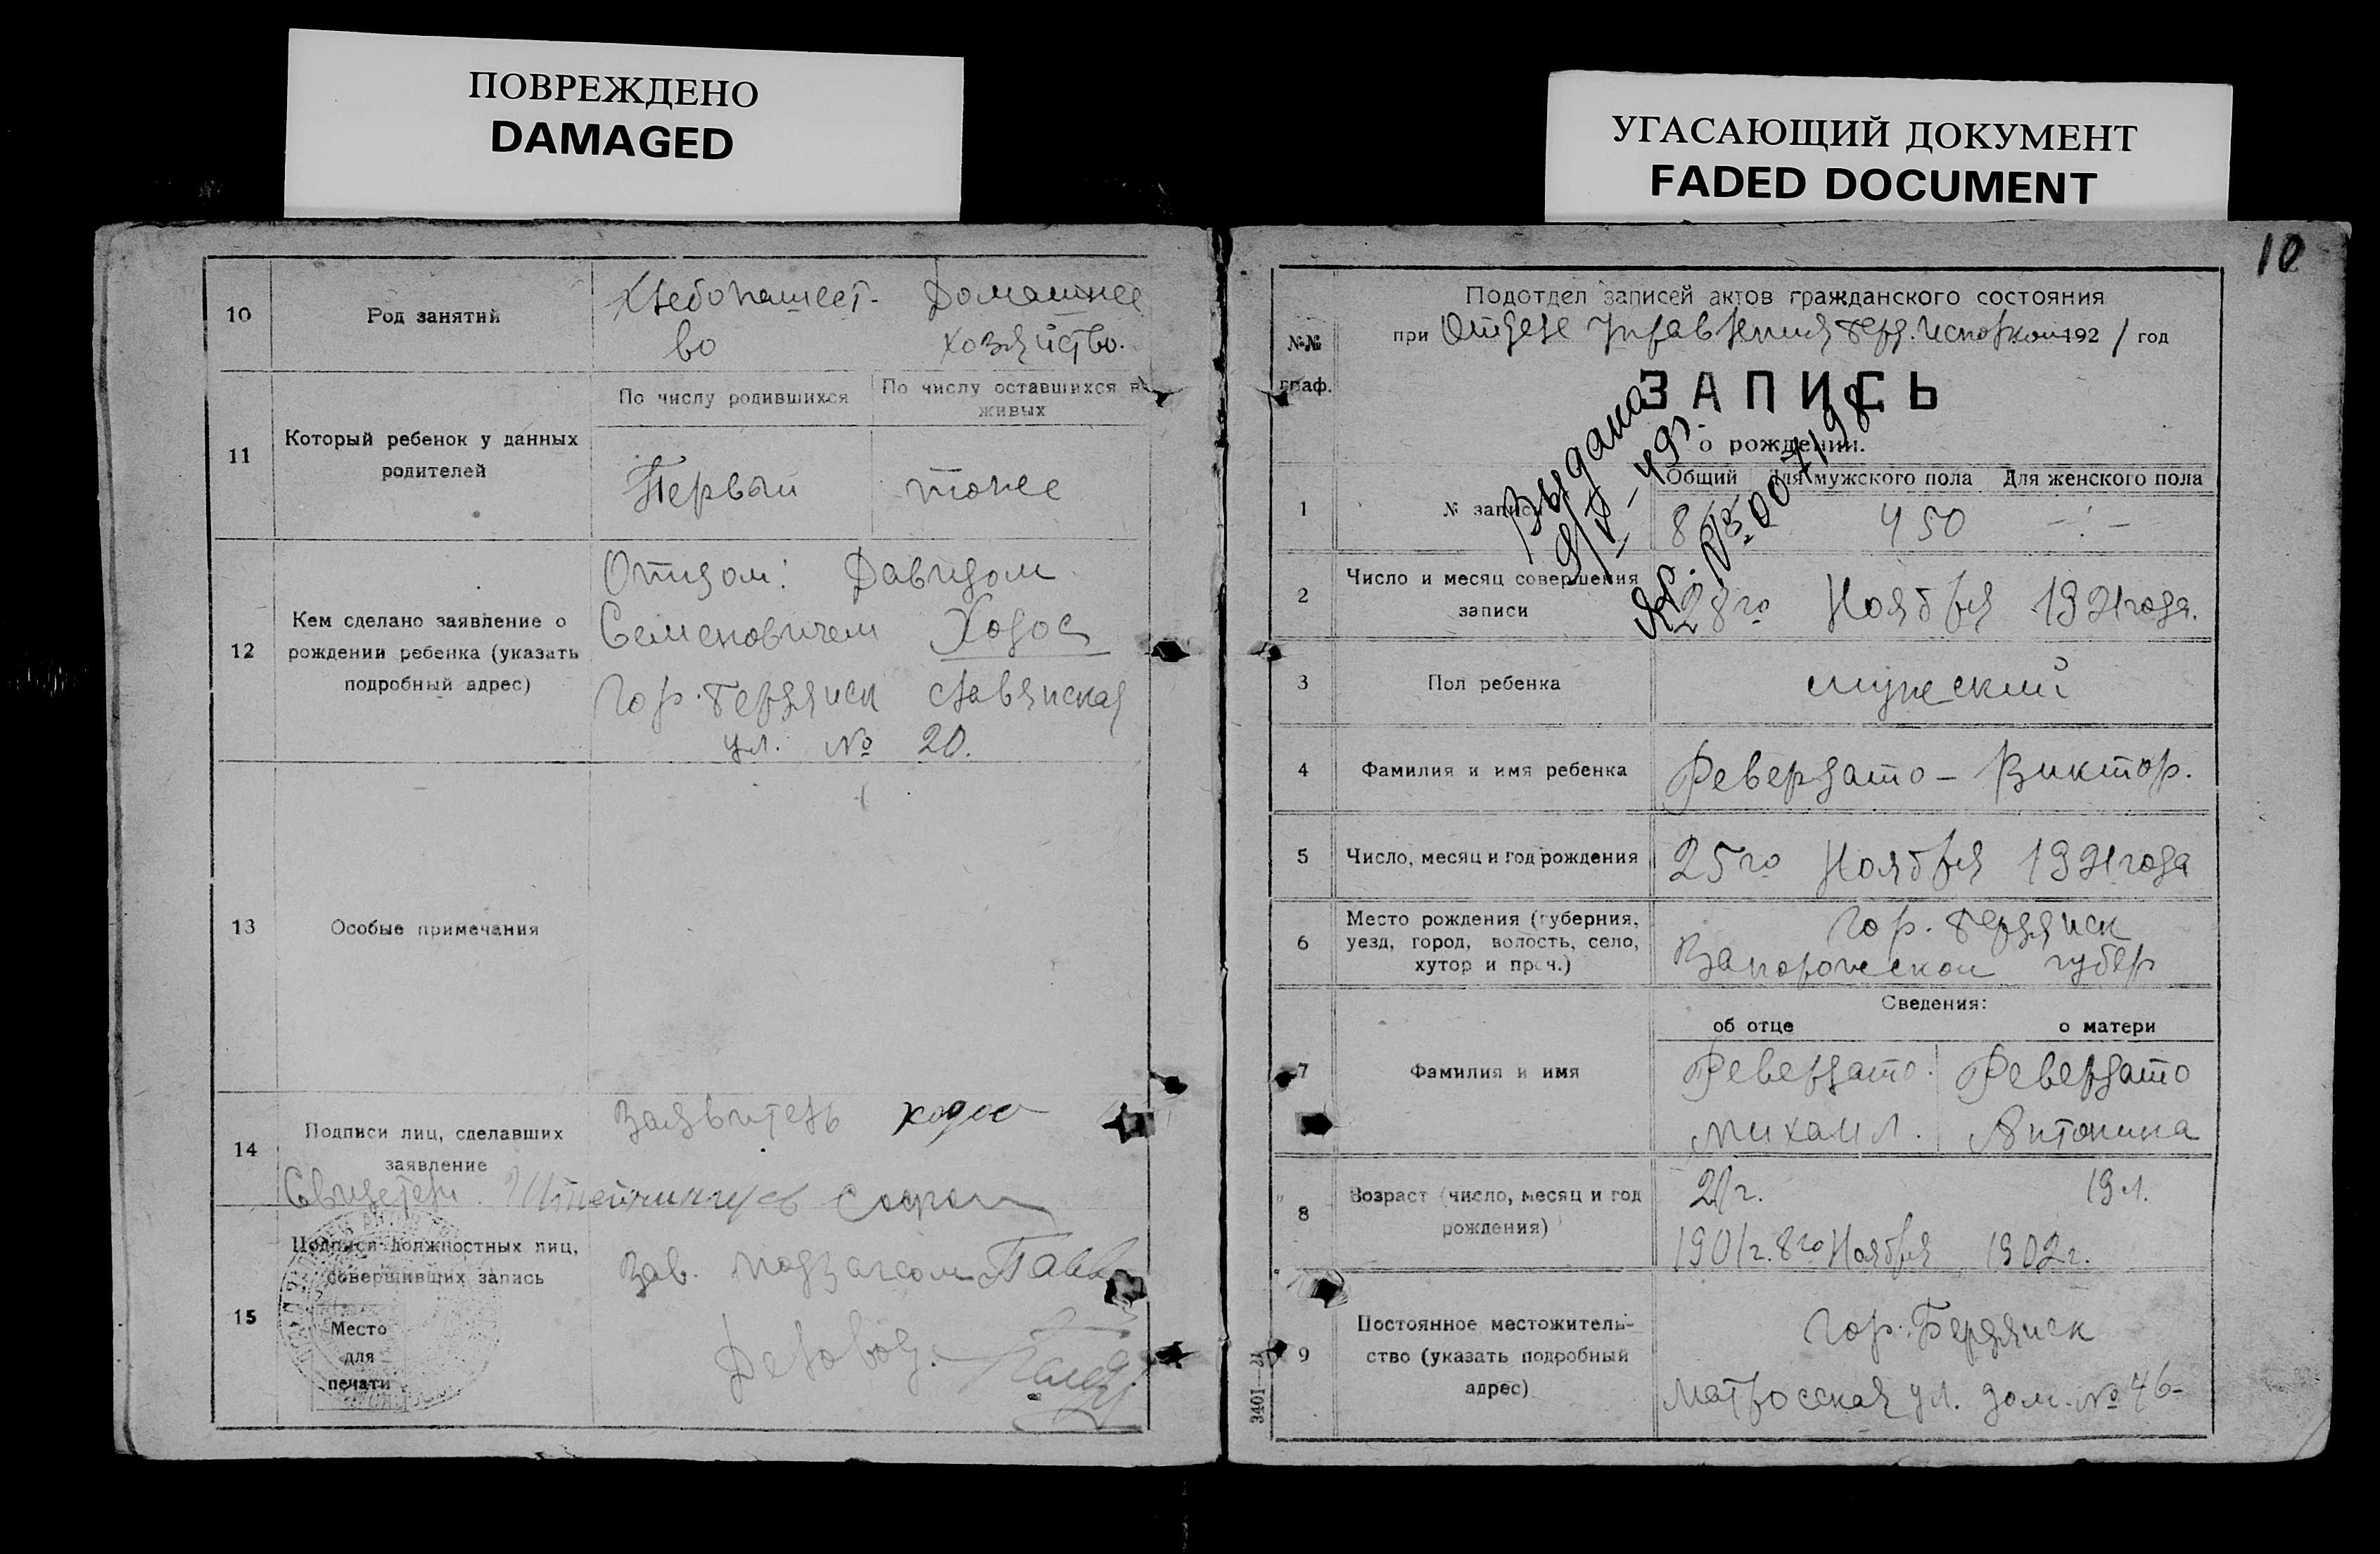 ПОВРЕЖДЕНО
DAMAGED
УГАСАЮЩИЙ ДОКУМЕНТ
FADED DOCUMENT
10
Род занятий
Хлебопашест-
во
Домашнее
хозяйство.
11
Который ребенок у данных
родителей
По числу родившихся
По числу оставшихся в
живых
Первый
тоже
12
Кем сделано заявление о
рождении ребенка (указать
подробный адрес)
Отцом: Давидом
Семеновичем Ходос
гор. Бердянск славянская
ул. № 20.
13
Особые примечания
14
Подписи лиц, сделавших
заявление
Заявитель Ходос
Свидетели.
15
Подписи должностных лиц,
совершивших запись
Место
для
печати
Зав. подзагсом
Деловод.
10
Подотдел записей актов гражданского состояния
при Отделе Управления Берд. Исполком 1921 год
№№
граф.
ЗАПИСЬ
о рождении.
Выдана
9/V-49г.
1
№ записи
Общий
Для мужского пола
Для женского пола
450
2
Число и месяц совершения
записи
28го Ноября 1921 года.
3
Пол ребенка
мужеский
4
Фамилия и имя ребенка
Ревердато - Виктор.
5
Число, месяц и год рождения
25го Ноября 1921 года
6
Место рождения (губерния,
уезд, город, волость, село,
хутор и проч.)
гор. Бердянск
Запорожской губер
7
Фамилия и имя
Сведения:
об отце
о матери
Ревердато
Михаил.
Ревердато
Антонина
8
Возраст (число, месяц и год
рождения)
20г.
1901г. 8го Ноября
19 л.
1902г.
9
Постоянное местожитель-
ство (указать подробный
адрес)
гор. Бердянск
Матросская ул. дом. № 46-
3401—21